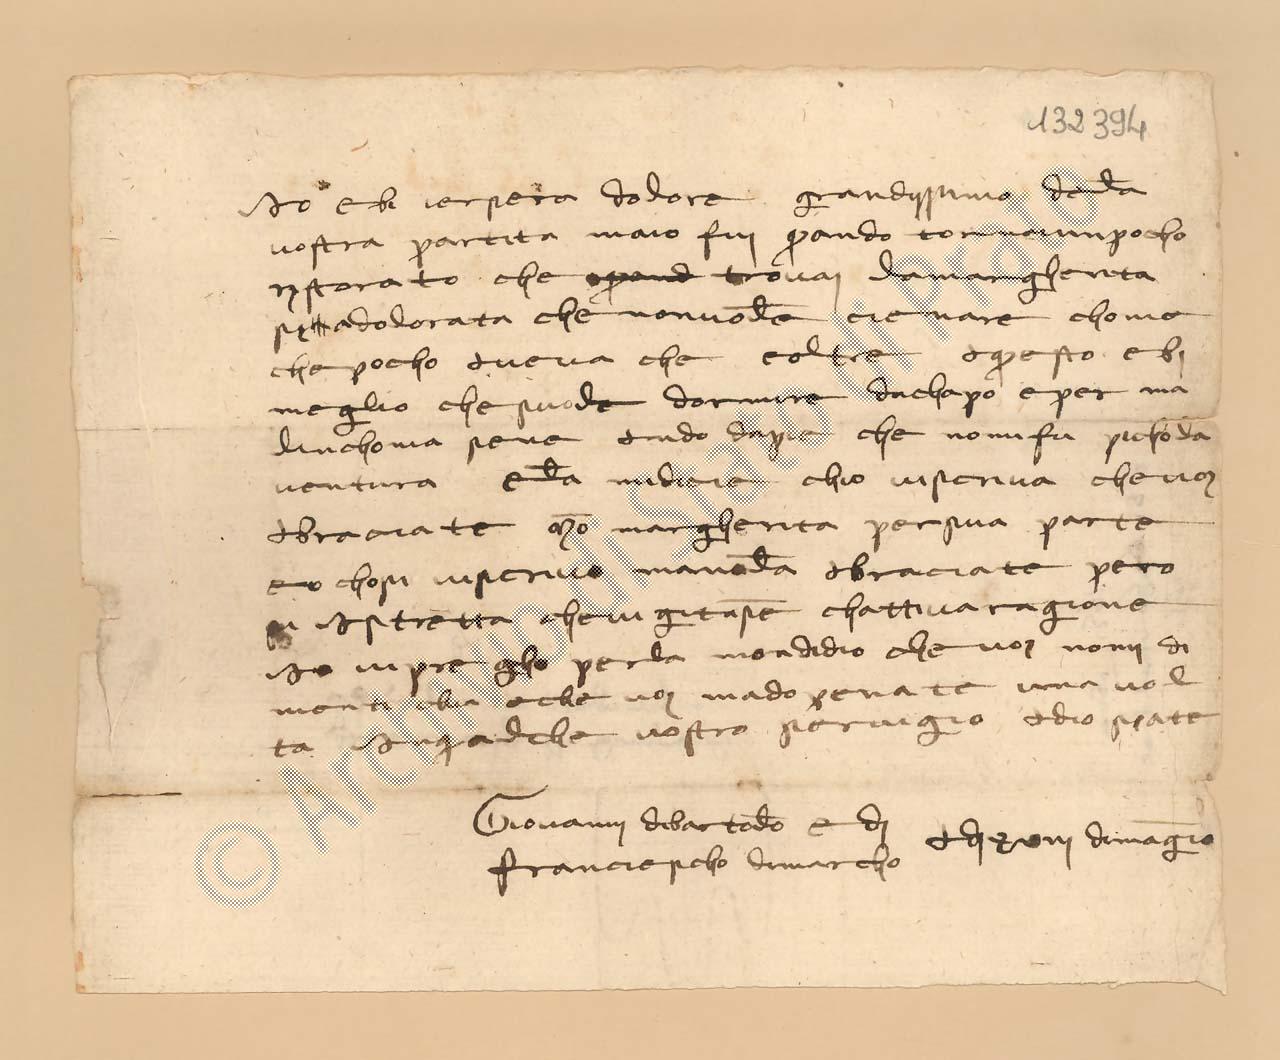 132394
Io ebi iersera dolore grandissimo dela
vostra partita maio fui quando tornai unpocho
ristorato che quand trovai lamargherita
si adolorata che nonvole cienare chome
che pocho aveva che eoltre aquesto ebi
meglio chesuole dormire dachapo eper ma
linchonia seve ando dapie che nonifu picholla
ventura ella midicie chio viscriva chevoi
abraciate mo margherita persua parte
eio chosi viscrivo manolla abraciate pero
si istretta chevigitase chattiva ragione
Io vi pregho perla mordidio chevoi nomi di
menti chiate voi madoperiate una vol
ta inqualche vostro servigio adio siate
Giovanni dibartolo e di
franciescho dimarcho
adi xviii dimagio
© Archivio di Stato di Prato